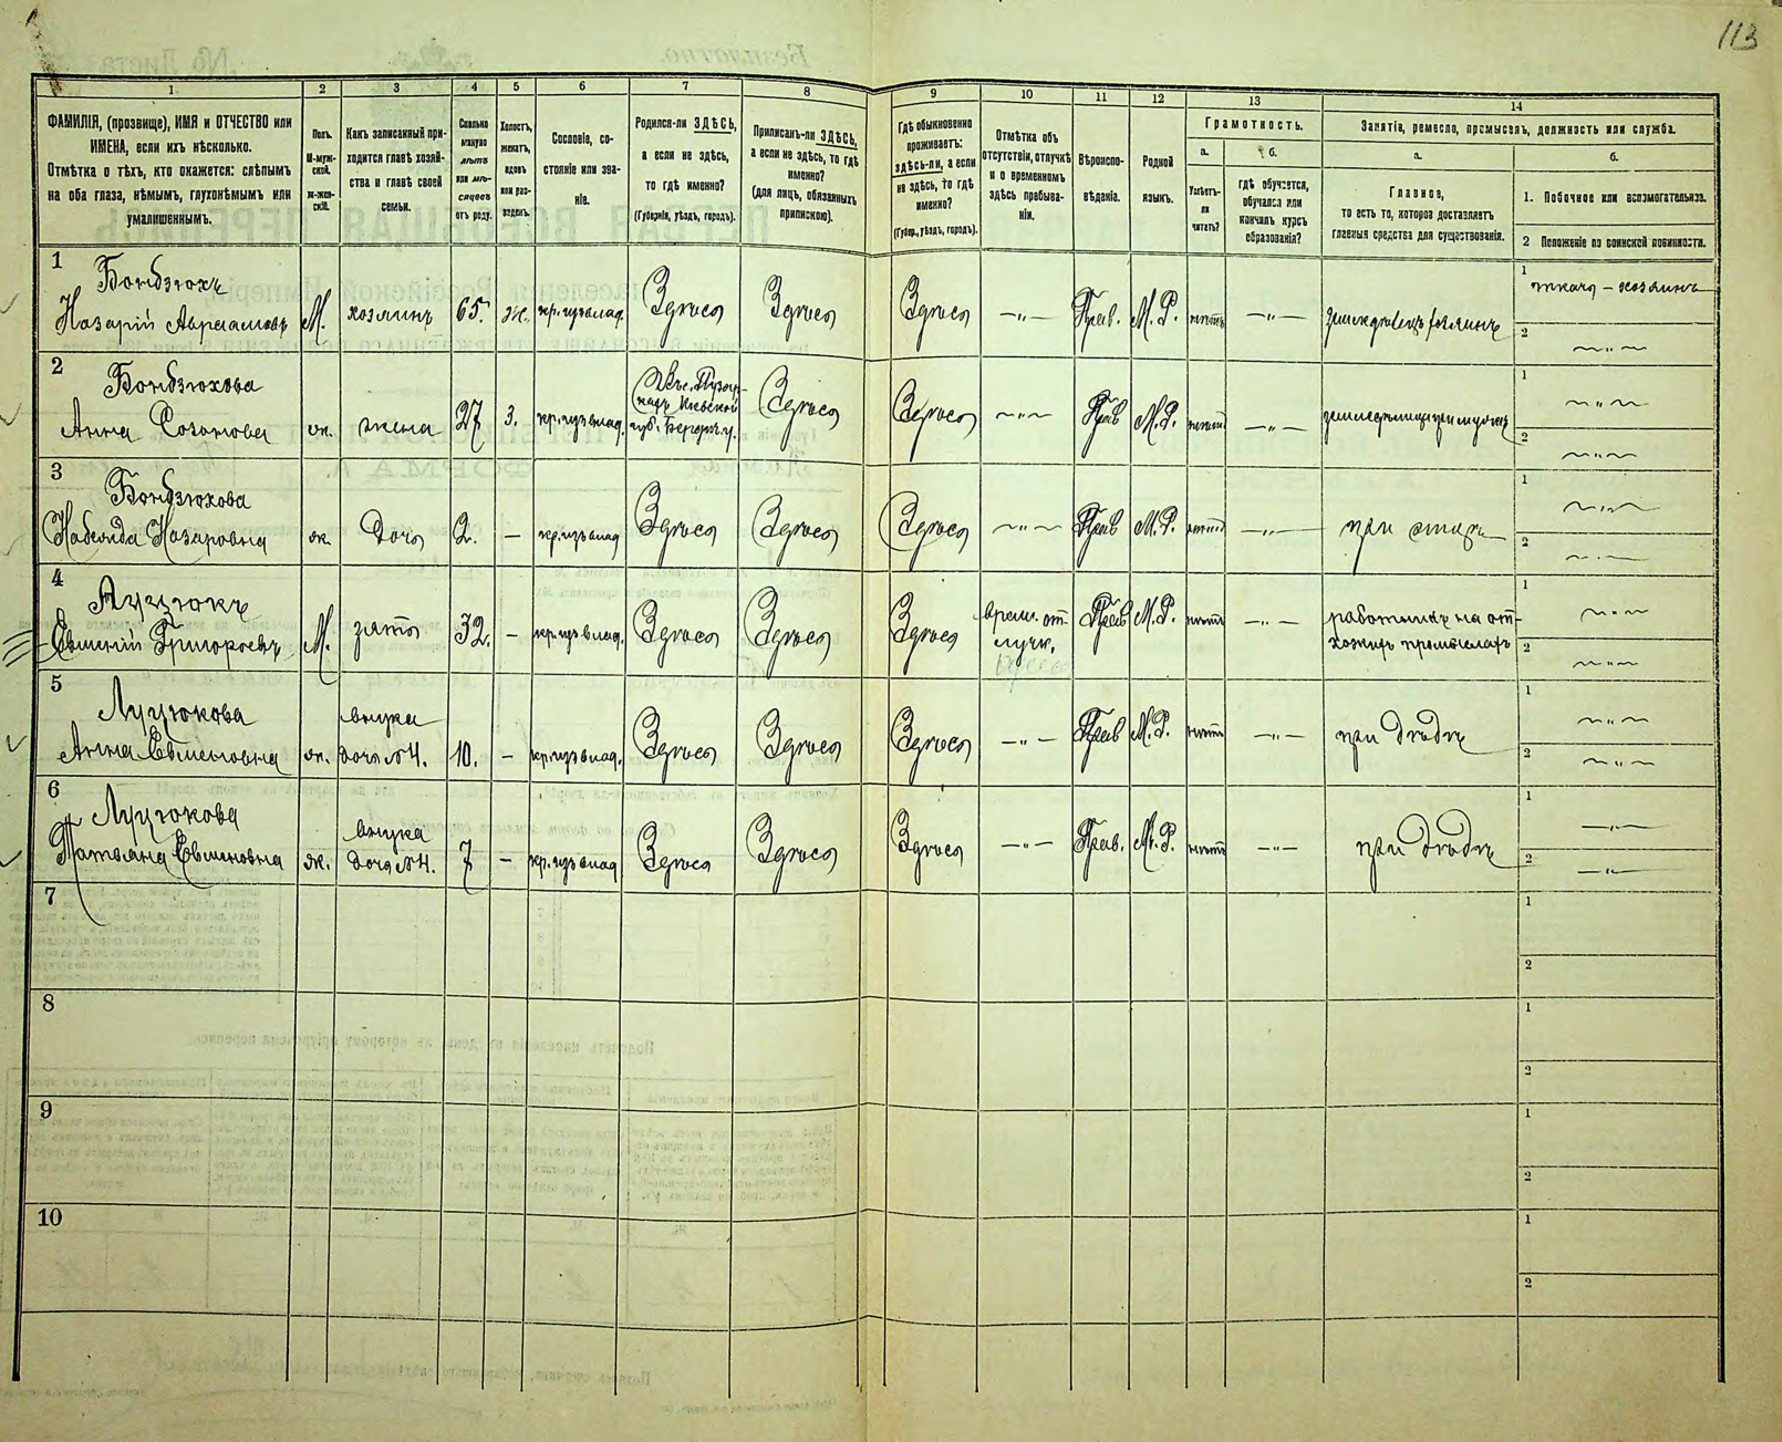 113
1
2
3
4
5
6
7
8
9
10
11
12
13
14
ФАМИЛІЯ, (прозвище), ИМЯ и ОТЧЕСТВО или
ИМЕНА, если ихъ нѣсколько.
Отмѣтка о тѣхъ, кто окажется: слѣпымъ
на оба глаза, нѣмымъ, глухонѣмымъ или
умалишеннымъ.
Полъ.
М-муж-
ской.
ж-жен-
скій.
Какъ записанный при-
ходится главѣ хозяй-
ства и главѣ своей
семьи.
Сколько
минуло
лѣтъ
или мѣ-
сяцевъ
отъ роду.
Холостъ,
женатъ,
вдовъ
или раз-
веденъ.
Сословіе, со-
стояніе или зва-
ніе.
Родился-ли ЗДѢСЬ,
а если не здѣсь,
то гдѣ именно?
(Губернія, уѣздъ, городъ).
Приписанъ-ли ЗДѢСЬ,
а если не здѣсь, то гдѣ
именно?
(для лицъ, обязанныхъ
припискою).
Гдѣ обыкновенно
проживаетъ:
здѣсь-ли, а если
не здѣсь, то гдѣ
именно?
(Губер., уѣздъ, городъ).
Отмѣтка объ
отсутствіи, отлучкѣ
и о временномъ
здѣсь пребыва-
ніи.
Вѣроиспо-
вѣданіе.
Родной
языкъ.
Грамотность.
а.
Умѣетъ-
ли
читать?
б.
гдѣ обучается,
обучался или
кончилъ курсъ
образованія?
Занятіе, ремесло, промыселъ, должность или служба.
а.
Главное,
то есть то, которое доставляетъ
главныя средства для существованія.
б.
1. Побочное или вспомогательное.
2 Положеніе по воинской повинности.
1
Бондзюхъ
Назарій Авраамовъ
М.
хозяинъ
65.
ж.
кр. изъ влад.
Здѣсь
Здѣсь
Здѣсь
—„—
Прав.
М. Р.
нѣтъ
—„—
земледѣлецъ хозяинъ
1
ткачъ – хозяинъ
2
—„—
2
Бондзюхова
Анна Созонова
ж.
жена
27
З.
кр. изъ влад.
губ. Бердич. у.
Здѣсь
Здѣсь
—„—
Прав
М. Р.
нѣтъ
—„—
1
—„—
2
—„—
3
Бондзюхова
Надежда Назаровна
ж.
Дочь
2.
—
кр. изъ влад
Здѣсь
Здѣсь
Здѣсь
—„—
Прав
М. Р.
нѣтъ
—„—
при отцѣ
1
—„—
2
—„—
4
Луцюкъ
Евменій Григорьевъ
М.
зять
32.
–
кр. изъ влад.
Здѣсь
Здѣсь
Здѣсь
времен. от-
лучк.
Прав
М. Р.
нѣтъ
—„—
работникъ на от-
хожихъ промыслахъ
1
—„—
2
—„—
5
Луцюкова
Анна Евменовна
ж.
внука
дочь №4.
10.
–
кр. изъ влад.
Здѣсь
Здѣсь
Здѣсь
—„—
Прав
М. Р.
нѣтъ
—„—
при дѣдѣ
1
—„—
2
—„—
6
Луцюкова
Татьяна Евменовна
ж.
внука
дочь №4.
7
–
кр. изъ влад
Здѣсь
Здѣсь
Здѣсь
—„—
Прав.
М. Р.
нѣтъ
—„—
при дѣдѣ
1
—„—
2
—„—
7
1
2
8
1
2
9
1
2
10
1
2